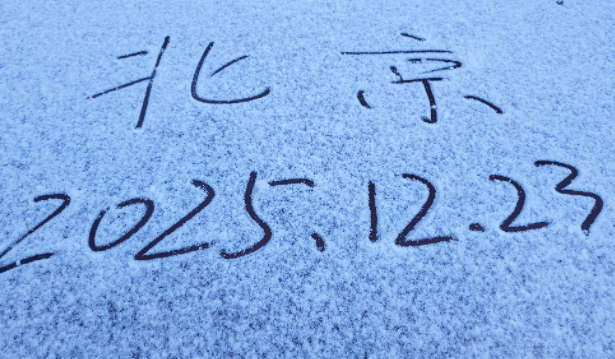 北京
2025.12.23